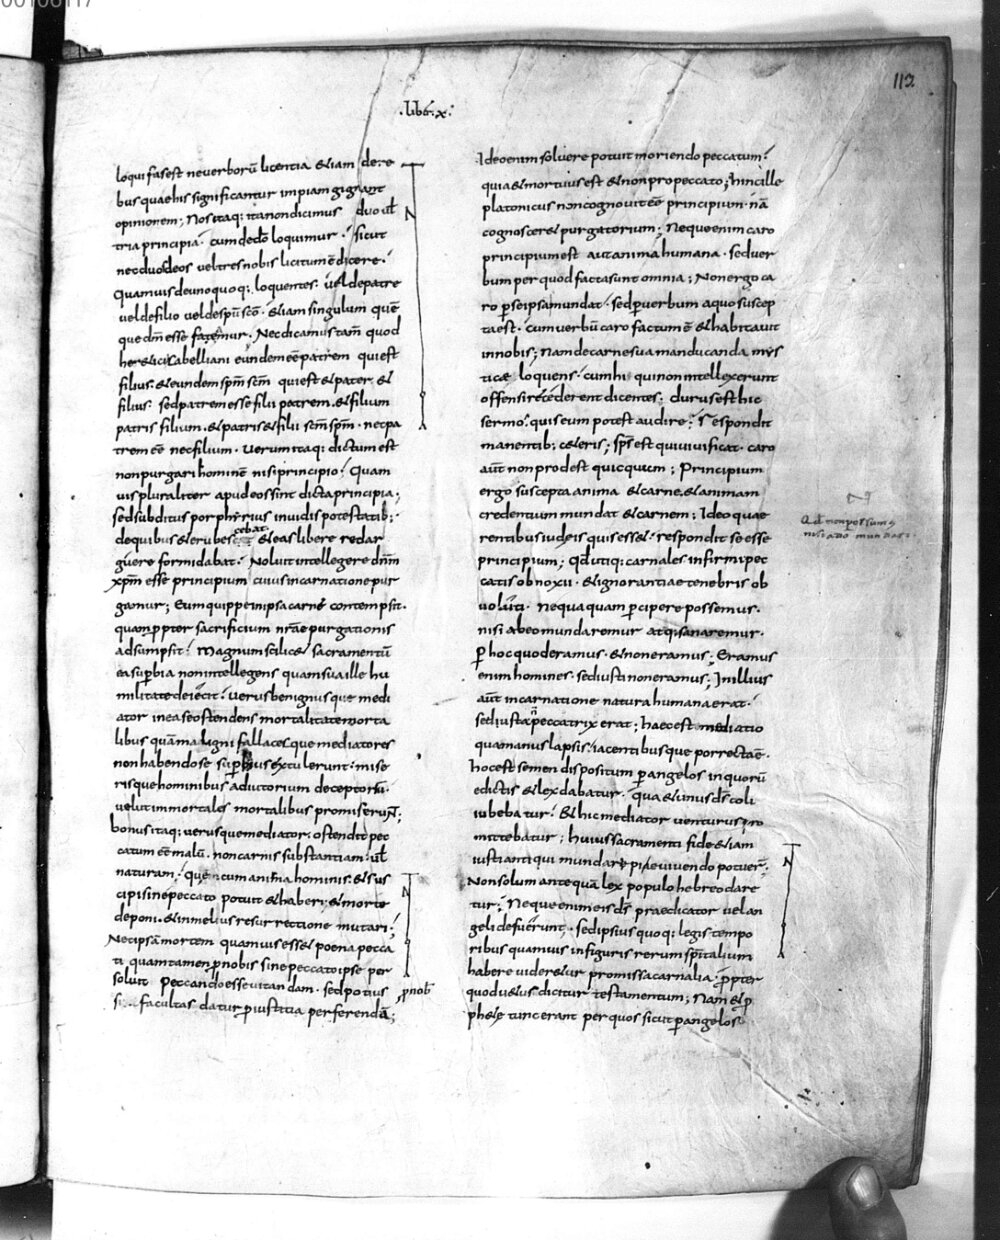 00106117
112
.lib&r.x:
loqui fas est neverborū licentia &iam dere
bus quaehis significantur impiam gignant
opinionem; Nos itaq; itanondicimus duo uł
tria principia. cumdedō loquimur. sicut
necduosdeos veltresnobis licitumēdicere.
Quamuis deunoquoq; loquentes. uel depatre
veldefilio veldespū scō. &iam singulum quē
que dm̄ esse fatemur. Necdicamus tam̄ quod
her&ici sabelliani eundem eē patrem quiest
filius. &eundem spm̄ scm̄ quiest &pater. &
filius. sedpatrem esse filii patrem. &filium
patris filium. &patris &filii scm̄ spm̄. necpa
trem eē necfilium. Verumitaq; dictumest
nonpurgari hominē nisi principio. Quam
uis pluraliter apudeos sint dicta principia;
sed subditus porphyrius inuidis potestatib;
dequibus &erubescebat &eas libere redar
guere formidabat. Noluit intellegere dn̄m
xpm̄ esse principium cuius incarnatione pur
gamur; Eum quippe inipsa carnē contempsit.
quam ppter sacrificium nr̄ae purgationis
adsumpsit. Magnum scilic& sacramentū
easuꝑbia nonintellegens quamsua ille hu
militate deiecit. verus benignusque medi
ator in ea se ostendens mortalitate morta
libus quāmaligni fallacesque mediatores
non habendo se suꝑbius extulerunt. mise
risque hominibus adiutorium deceptorium
velut immortales mortalibus promiserunt;
bonus itaq; verusque mediator. ostendit pec
catum eē malū. noncarnis substantiam. uł
naturam. quęcum anima hominis. &sus
cipi sinepeccato potuit &haberi. &morte
deponi. &inmelius resurrectione mutari;
Necipsā mortem quamuis ess& poena pecca
ti quam tamen ꝓnobis sine peccato ipse per
soluit peccando esse uitandam. sedpotius
si facultas datur ꝓ iustitia perferendā;
ꝓnob̄
Ideoenim soluere potuit moriendo peccatum.
quia&mortuus est &non propeccato; hincille
platonicus noncognouit eē principium. nā
cognoscer& purgatorium; Neque enim caro
principium est aut anima humana. sed uer
bum per quod facta sunt omnia; Nonergo ca
ro ꝑ seipsa mundat. sed ꝑ uerbum aquo suscep
ta est. cum uerbū caro factum ē &habitauit
in nobis; Nam decarne sua manducanda mys
ticæ loquens. cum hi qui non intellexerunt
offensi recederent dicentes. durus est hic
sermo. quis eum potest audire; Respondit
manentib; c&eris; sps̄ est qui uiuificat. caro
aūt non prodest quicquam; Principium
ergo suscepta anima &carne. &animam
credentium mundat &carnem; Ideo quae
rentibus iudeis quis ess&. respondit se esse
principium; qd̄ utiq; carnales infirmi pec
catis obnoxii. &ignorantiae tenebris ob
uoluti. nequaquam ꝑcipere possemus.
nisi abeo mundaremur atq; sanaremur.
ꝑ hoc quod eramus. &non eramus; Eramus
enim homines. sed iusti non eramus; In illius
aūt incarnatione natura humana erat.
sed iusta n̄ peccatrix erat; haec est mediatio
qua manus lapsis iacentibusque porrecta ē.
hoc est semen dispositum ꝑ angelos in quorū
edictis &lex dabatur. qua &unus ds̄ coli
iubebatur. &hic mediator uenturus pro
mittebatur; huius sacramenti fide &iam
iusti antiqui mundari pie uiuendo potuer̄.
Non solum antequā lex populo hebreo dare
tur; Neque enim eis ds̄ praedicator uel an
geli defuerunt. sed ipsius quoq; legis tempo
ribus quamuis in figuris rerum spitalium
habere uider&ur promissa carnalia. ꝓpter
quod u&us dicitur testamentum; Nam &ꝓ
ph&ę tunc erant per quos sicut ꝑ angelos
Qd̄ non possumus
nisi a do mundari.